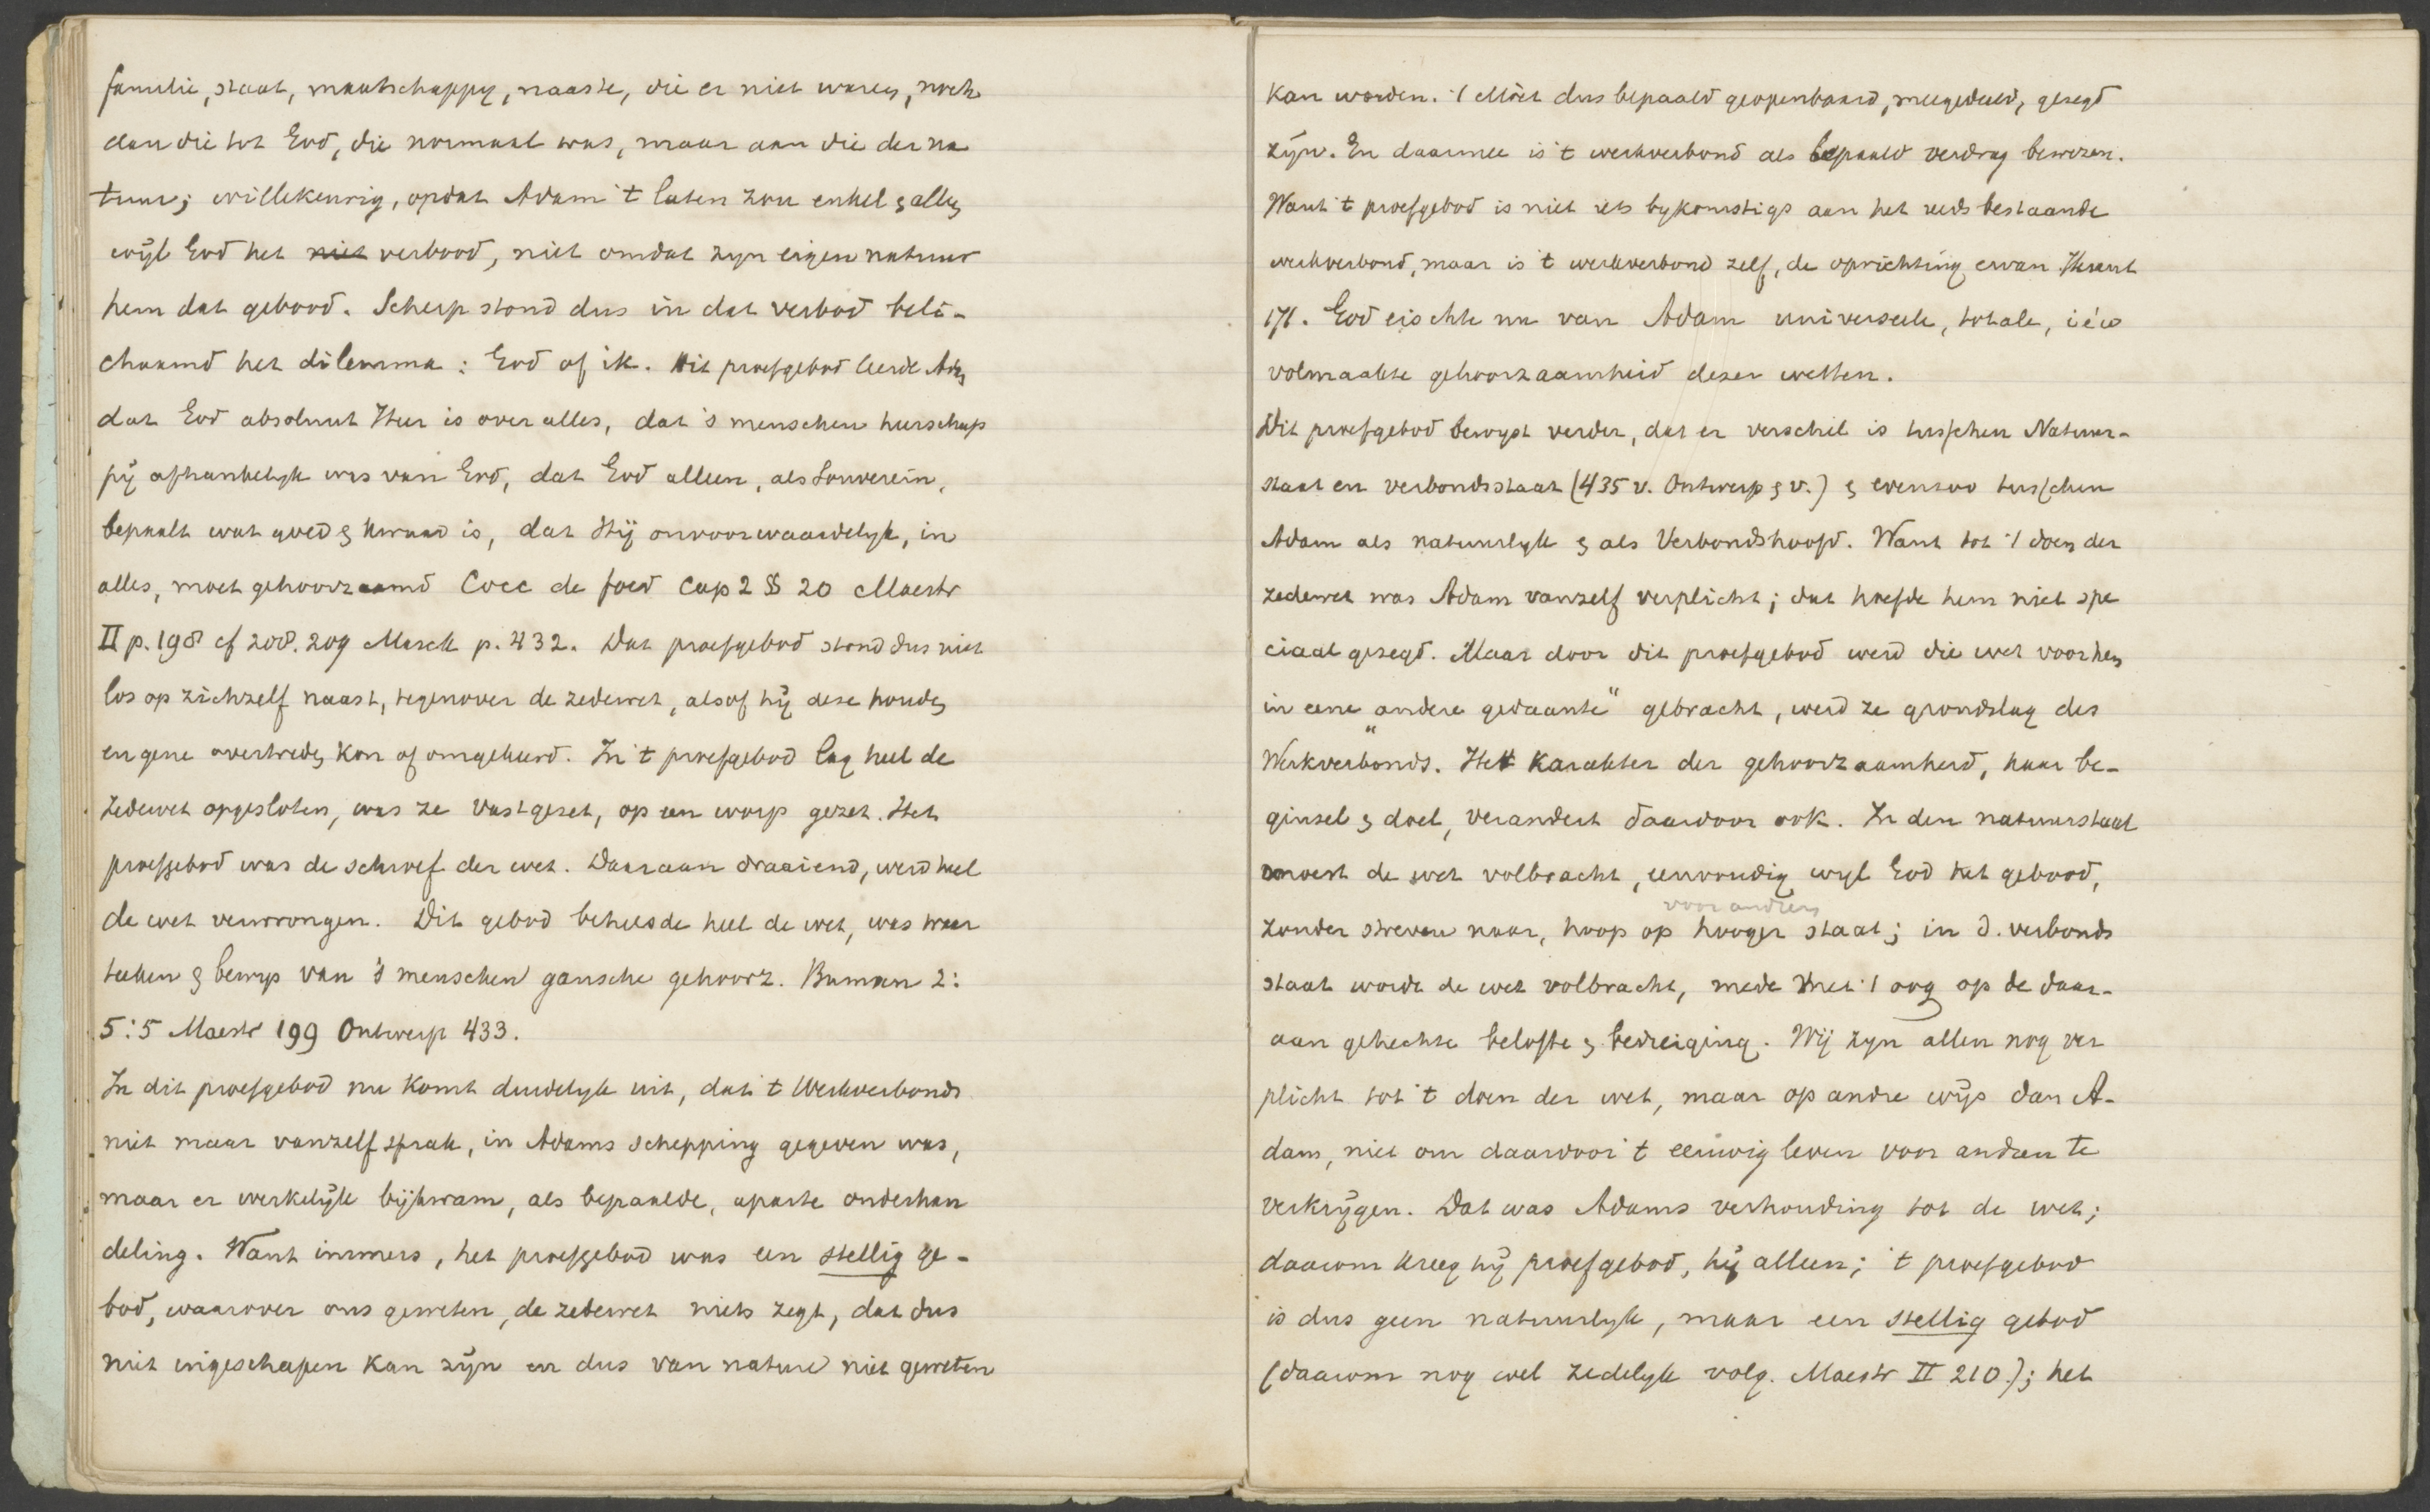 familie, staat, maatschappy, naaste, die er niet waren, noch
dan die tot God, die normaal was, maar aan die der na
tuur; willekeurig, opdat Adam 't laten zou enkel & alleen
wijl God het niet verbood, niet omdat zyn eigen natuur
hem dat gebood. Scherp stond dus in dat verbod beli-
chaamd het dilemma: God of ik. Dit proefgebod leerde Adam
dat God absoluut Heer is over alles, dat 's menschen heerschap
pij afhankelyk was van God, dat God alleen, als Souverein,
bepaalt wat goed & kwaad is, dat Hij onvoorwaardelyk, in
alles, moet gehoorzaamd Cocc de foed Cap 2 § 20 Maestr
II p. 198 cf 208. 209 Marck p. 432. Dat proefgebod stond dus niet
los op zichzelf naast, tegenover de zedewet, alsof hij deze houden
en gene overtreden kon of omgekeerd. In 't proefgebod lag heel de
zedewet opgesloten, was ze vastgezet, op een worp gezet. Het
proefgebod was de schroef der wet. Daaraan draaiend, werd heel
de wet verwrongen. Dit gebod behelsde heel de wet, was waar
teeken & bewys van 's menschen gansche gehoorz. Burman 2:
5:5 Maestr 199 Ontwerp 433.
In dit proefgebod nu komt duidelyk uit, dat 't Werkverbond
niet maar vanzelf sprak, in Adams schepping gegeven was,
maar er werkelijk bijkwam, als bepaalde, aparte onderhan
deling. Want immers, het proefgebod was een stellig ge-
bod, waarover ons geweten, de zedewet niets zegt, dat dus
niet ingeschapen kan zijn en dus van nature niet geweten
kan worden. 't Moet dus bepaald geopenbaard, meegedeeld, gezegd
zijn. En daarmee is 't werkverbond als bepaald verdrag bewezen.
Want 't proefgebod is niet iets bykomstigs aan het reeds bestaande
werkverbond, maar is 't werkverbond zelf, de oprichting ervan
171. God eischte nu van Adam universeele, totale, i é w
volmaakte gehoorzaamheid dezer wetten.
Dit proefgebod bewyst verder, dat er verschil is tusschen Natuur-
staat en verbondsstaat (435 v. Ontwerp & v.) & evenzoo tusschen
Adam als natuurlyk & als Verbondshoofd. Want tot 't doen der
zedewet was Adam vanzelf verplicht; dat hoefde hem niet spe
ciaal gezegd. Maar door dit proefgebod werd die wet voor hem
in eene "andere gedaante" gebracht, werd ze grondslag des
Werkverbonds. Het karakter der gehoorzaamheid, haar be-
ginsel & doel, verandert daardoor ook. In den natuurstaat
moest de wet volbracht, eenvoudig wyl God het gebood,
voor anderen
zonder streven naar, hoop op hooger staat; in d. verbonds
staat wordt de wet volbracht, mede met 't oog op de daar-
aan gehechte belofte & bedreiging. Wij zyn allen nog ver
plicht tot 't doen der wet, maar op andre wijs dan A-
dam, niet om daardoor 't eeuwig leven voor andren te
verkrijgen. Dat was Adams verhouding tot de wet;
daarom kreeg hij proefgebod, hij alleen; 't proefgebod
is dus geen natuurlyk, maar een stellig gebod
(daarom nog wel zedelyk volg. Maestr II 210.); het